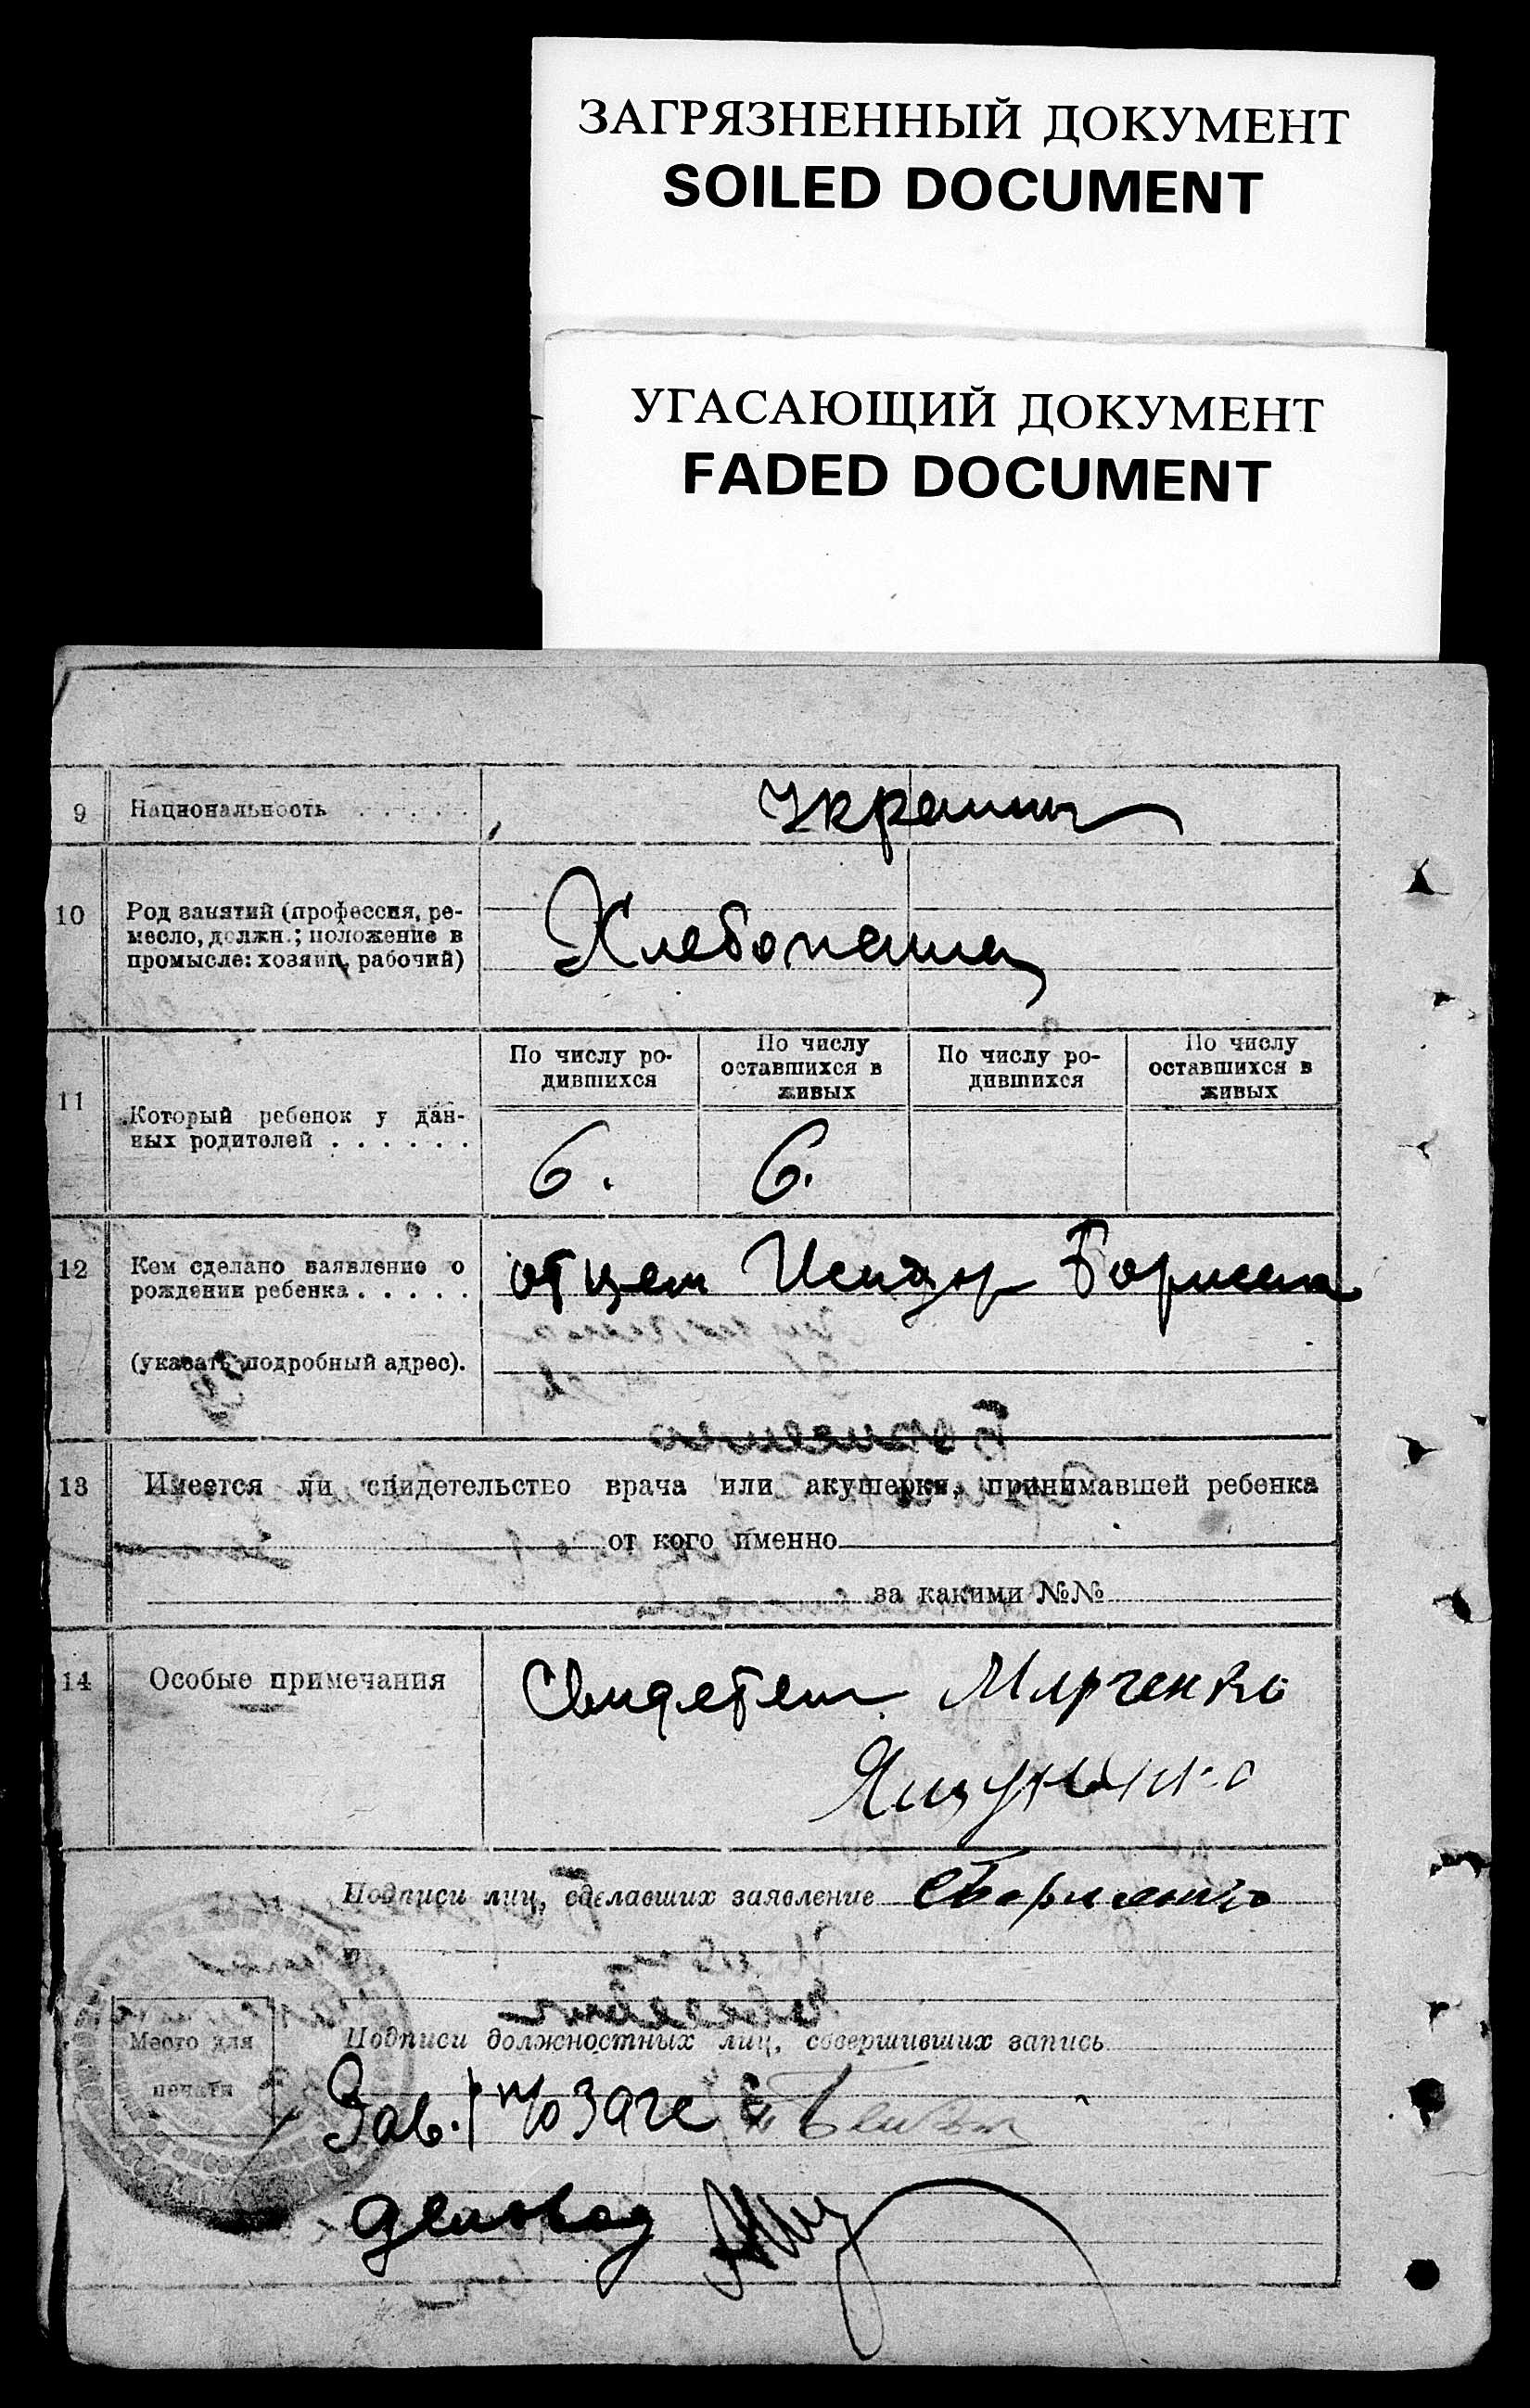 ЗАГРЯЗНЕННЫЙ ДОКУМЕНТ
SOILED DOCUMENT
УГАСАЮЩИЙ ДОКУМЕНТ
FADED DOCUMENT
9 Национальность . . . . .
10 Род занятий (профессия, ре-
месло, должн.; положение в
промысле: хозяин, рабочий)
Хлебопашец
11 Который ребенок у дан-
ных родителей . . . . . .
По числу ро-
дившихся
По числу
оставшихся в
живых
По числу ро-
дившихся
По числу
оставшихся в
живых
6. 6.
12 Кем сделано заявление о
рождении ребенка . . . . .
(указать подробный адрес).
отцем Исидор
13 Имеется ли свидетельство врача или акушерки, принимавшей ребенка
от кого именно
за какими №№
14 Особые примечания
Свидетели Марченко
Подписи лиц, сделавших заявление
Подписи должностных лиц, совершивших запись
Место для
печати
Зав.
Деловод